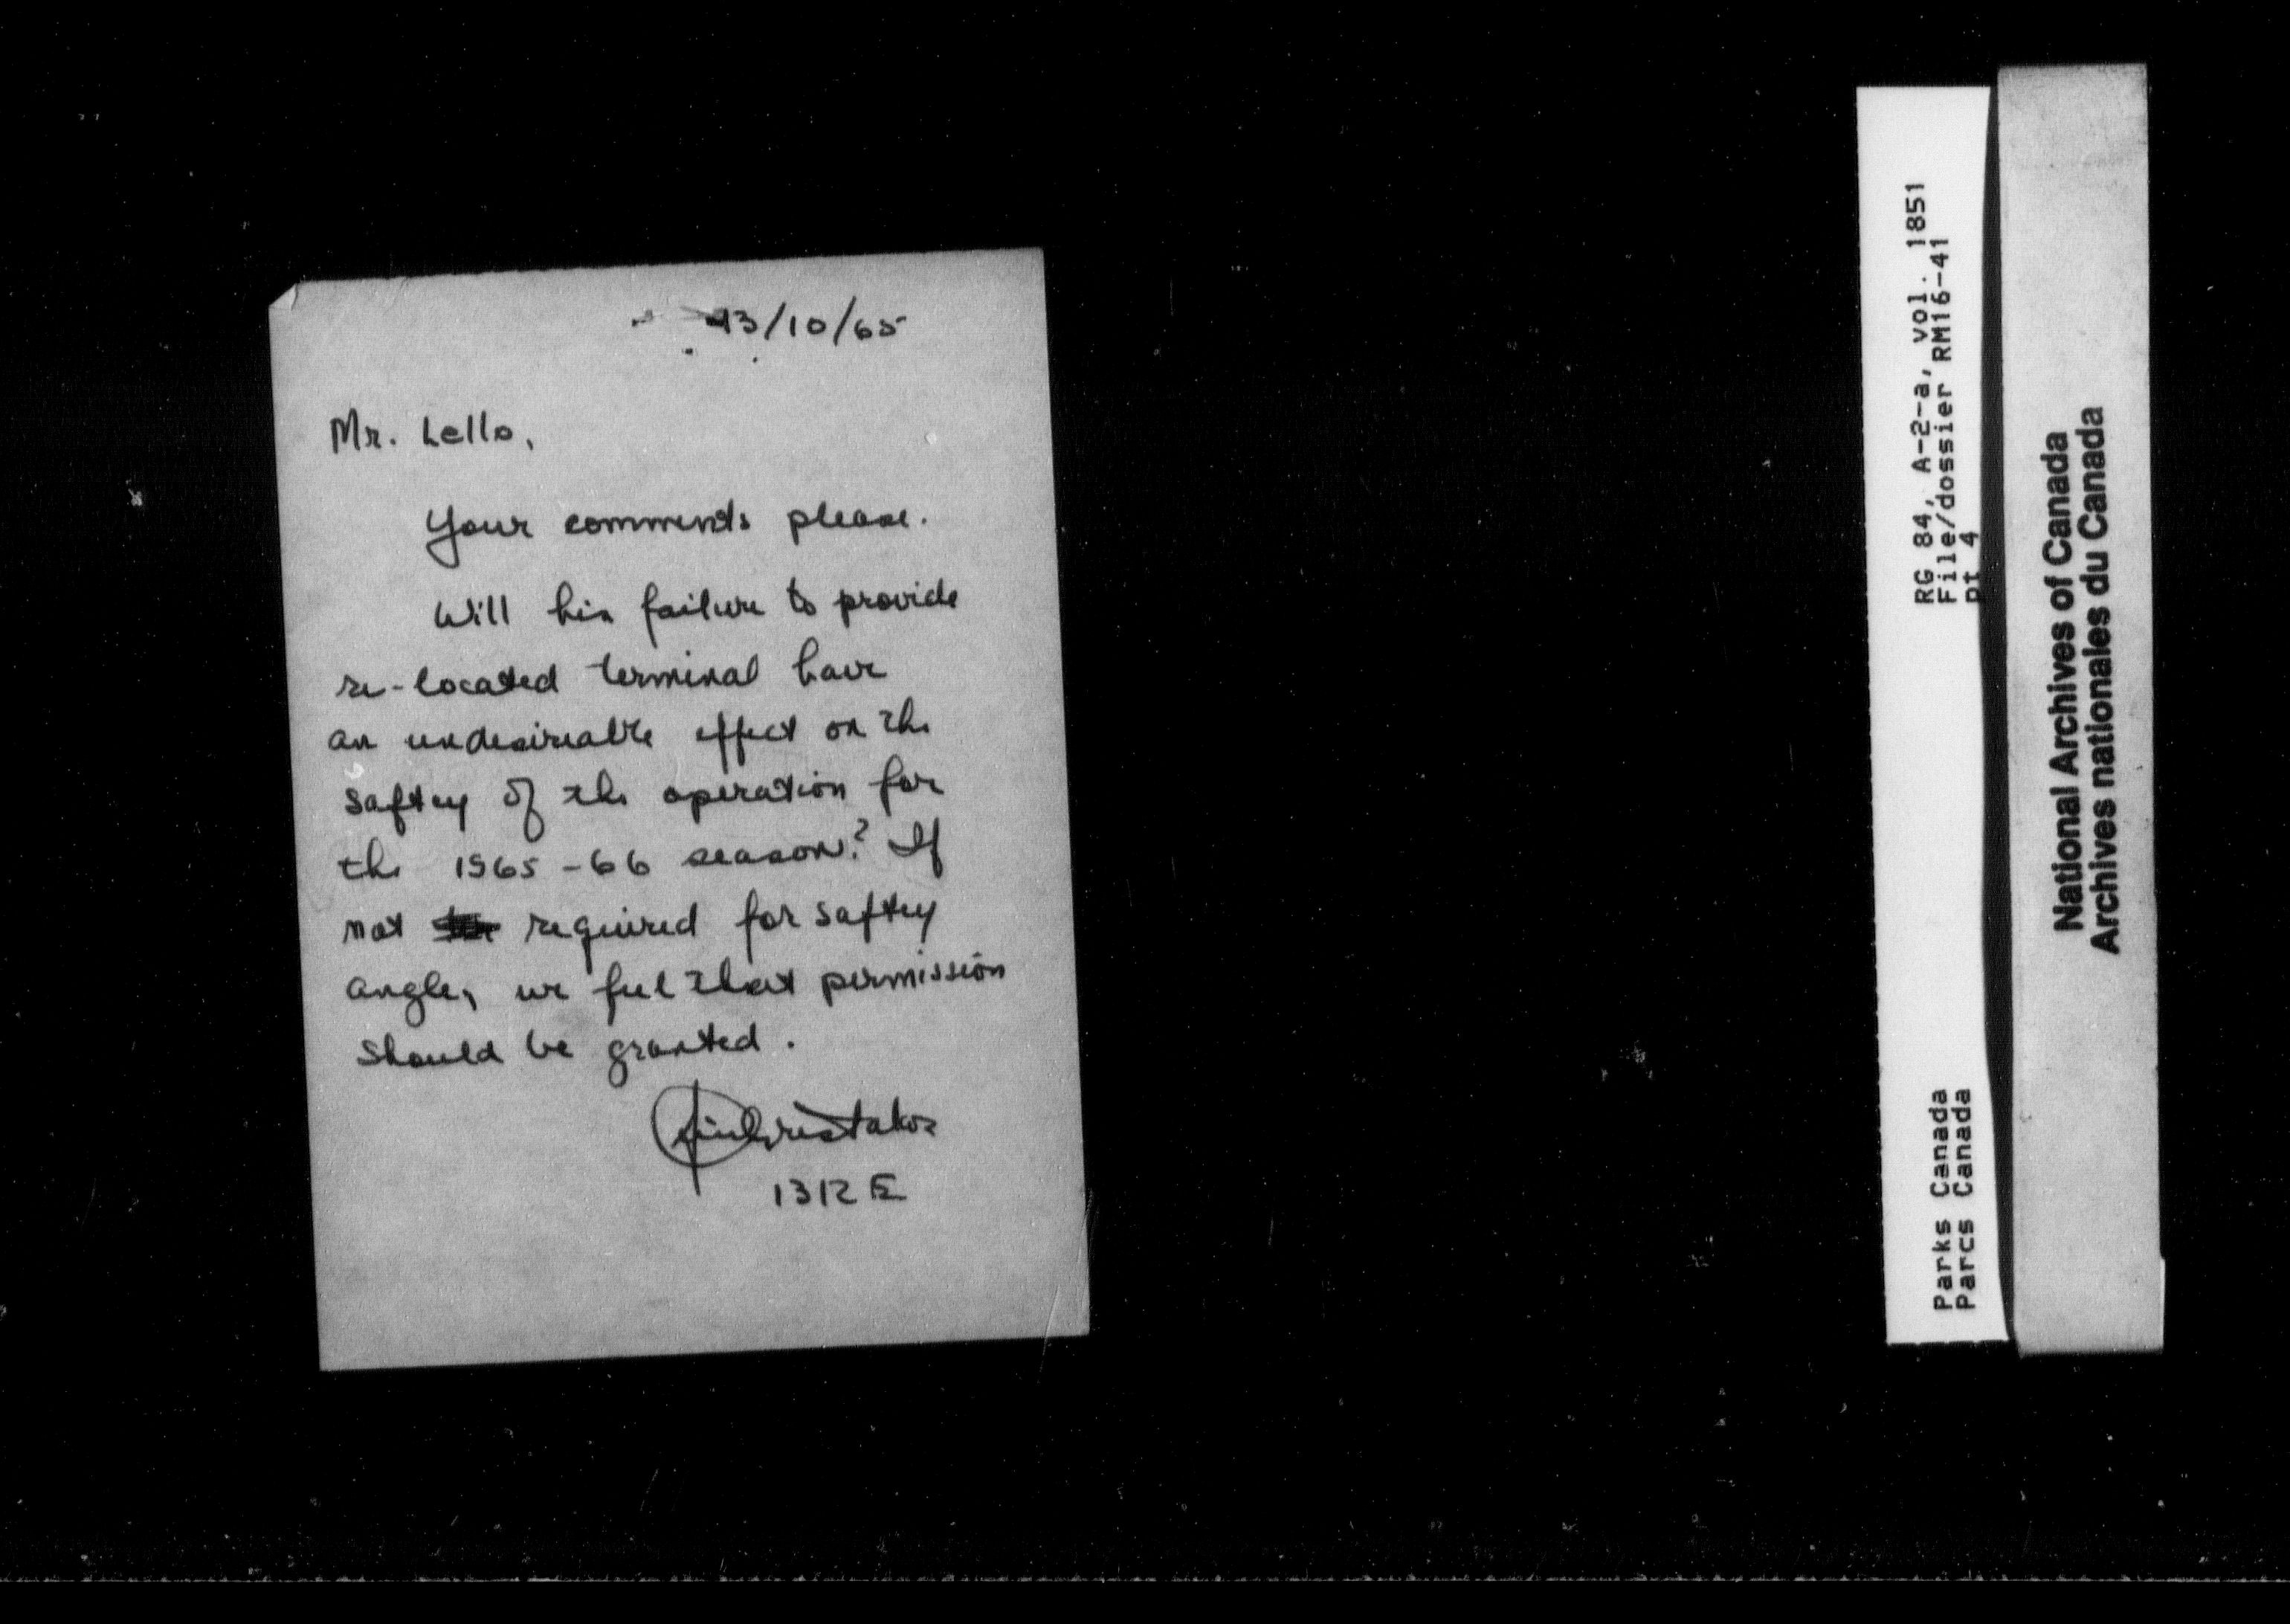 13/10/65
Mr. Lello,
Your comments please.
Will his failure to provide
re-located terminal have
an undesireable effect on the
saftey of the operation for
the 1965-66 season? If
not required for saftey
angle, we feel that permission
should be granted.
1312 E
RG 84, A-2-a, vol. 1851
File/dossier RM16-41
pt 4
Parks Canada
Parcs Canada
National Archives of Canada
Archives nationales du Canada